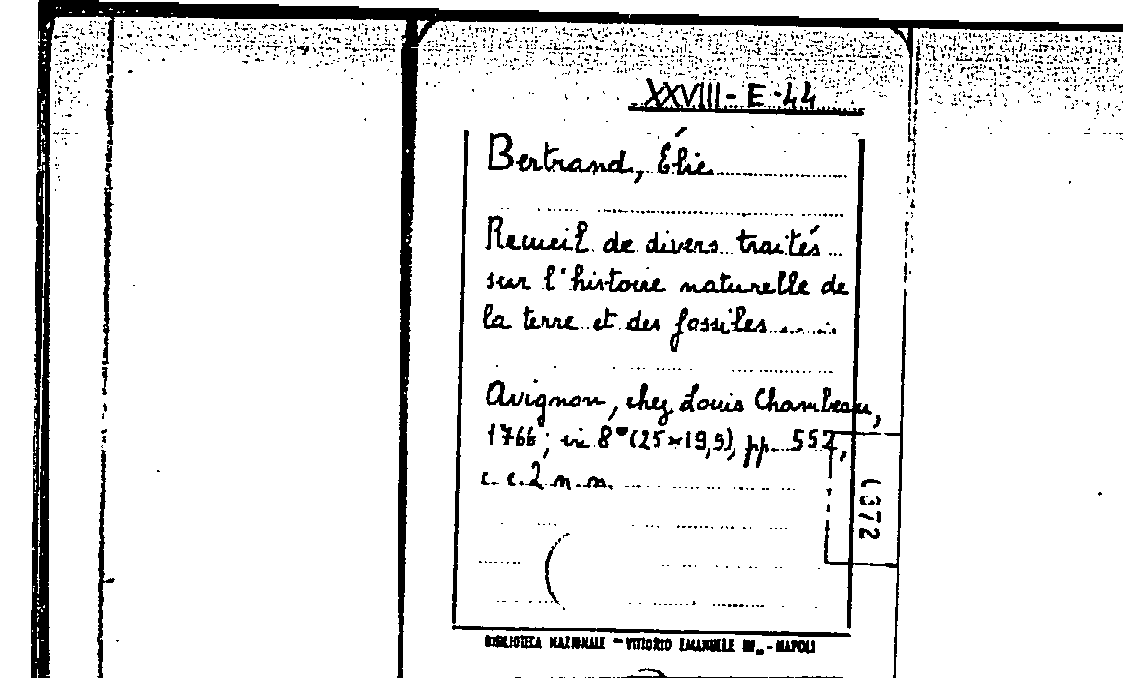 XXVIII-E-44
Bertrand, Élie
Recueil de divers traités
sur l'histoire naturelle de
la terre et des fossiles
Avignon, chez Louis Chambeau,
1766; in 8° (25×19,5), pp. 552,
c. c. 2 n. n.
1372
BIBLIOTECA NAZIONALE - VITTORIO EMANUELE III - NAPOLI